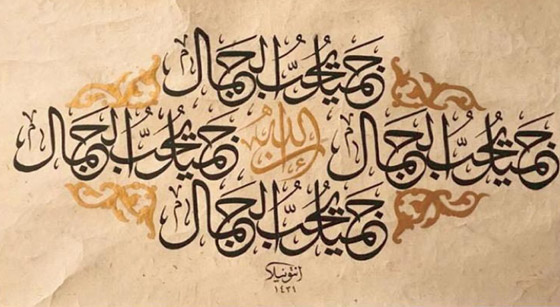 جميل يحبُّ الجمال
جميل يحبُّ الجمال إن الله جميل يحبُّ الجمال
جميل يحبُّ الجمال
انتونيلا
١٤٣١